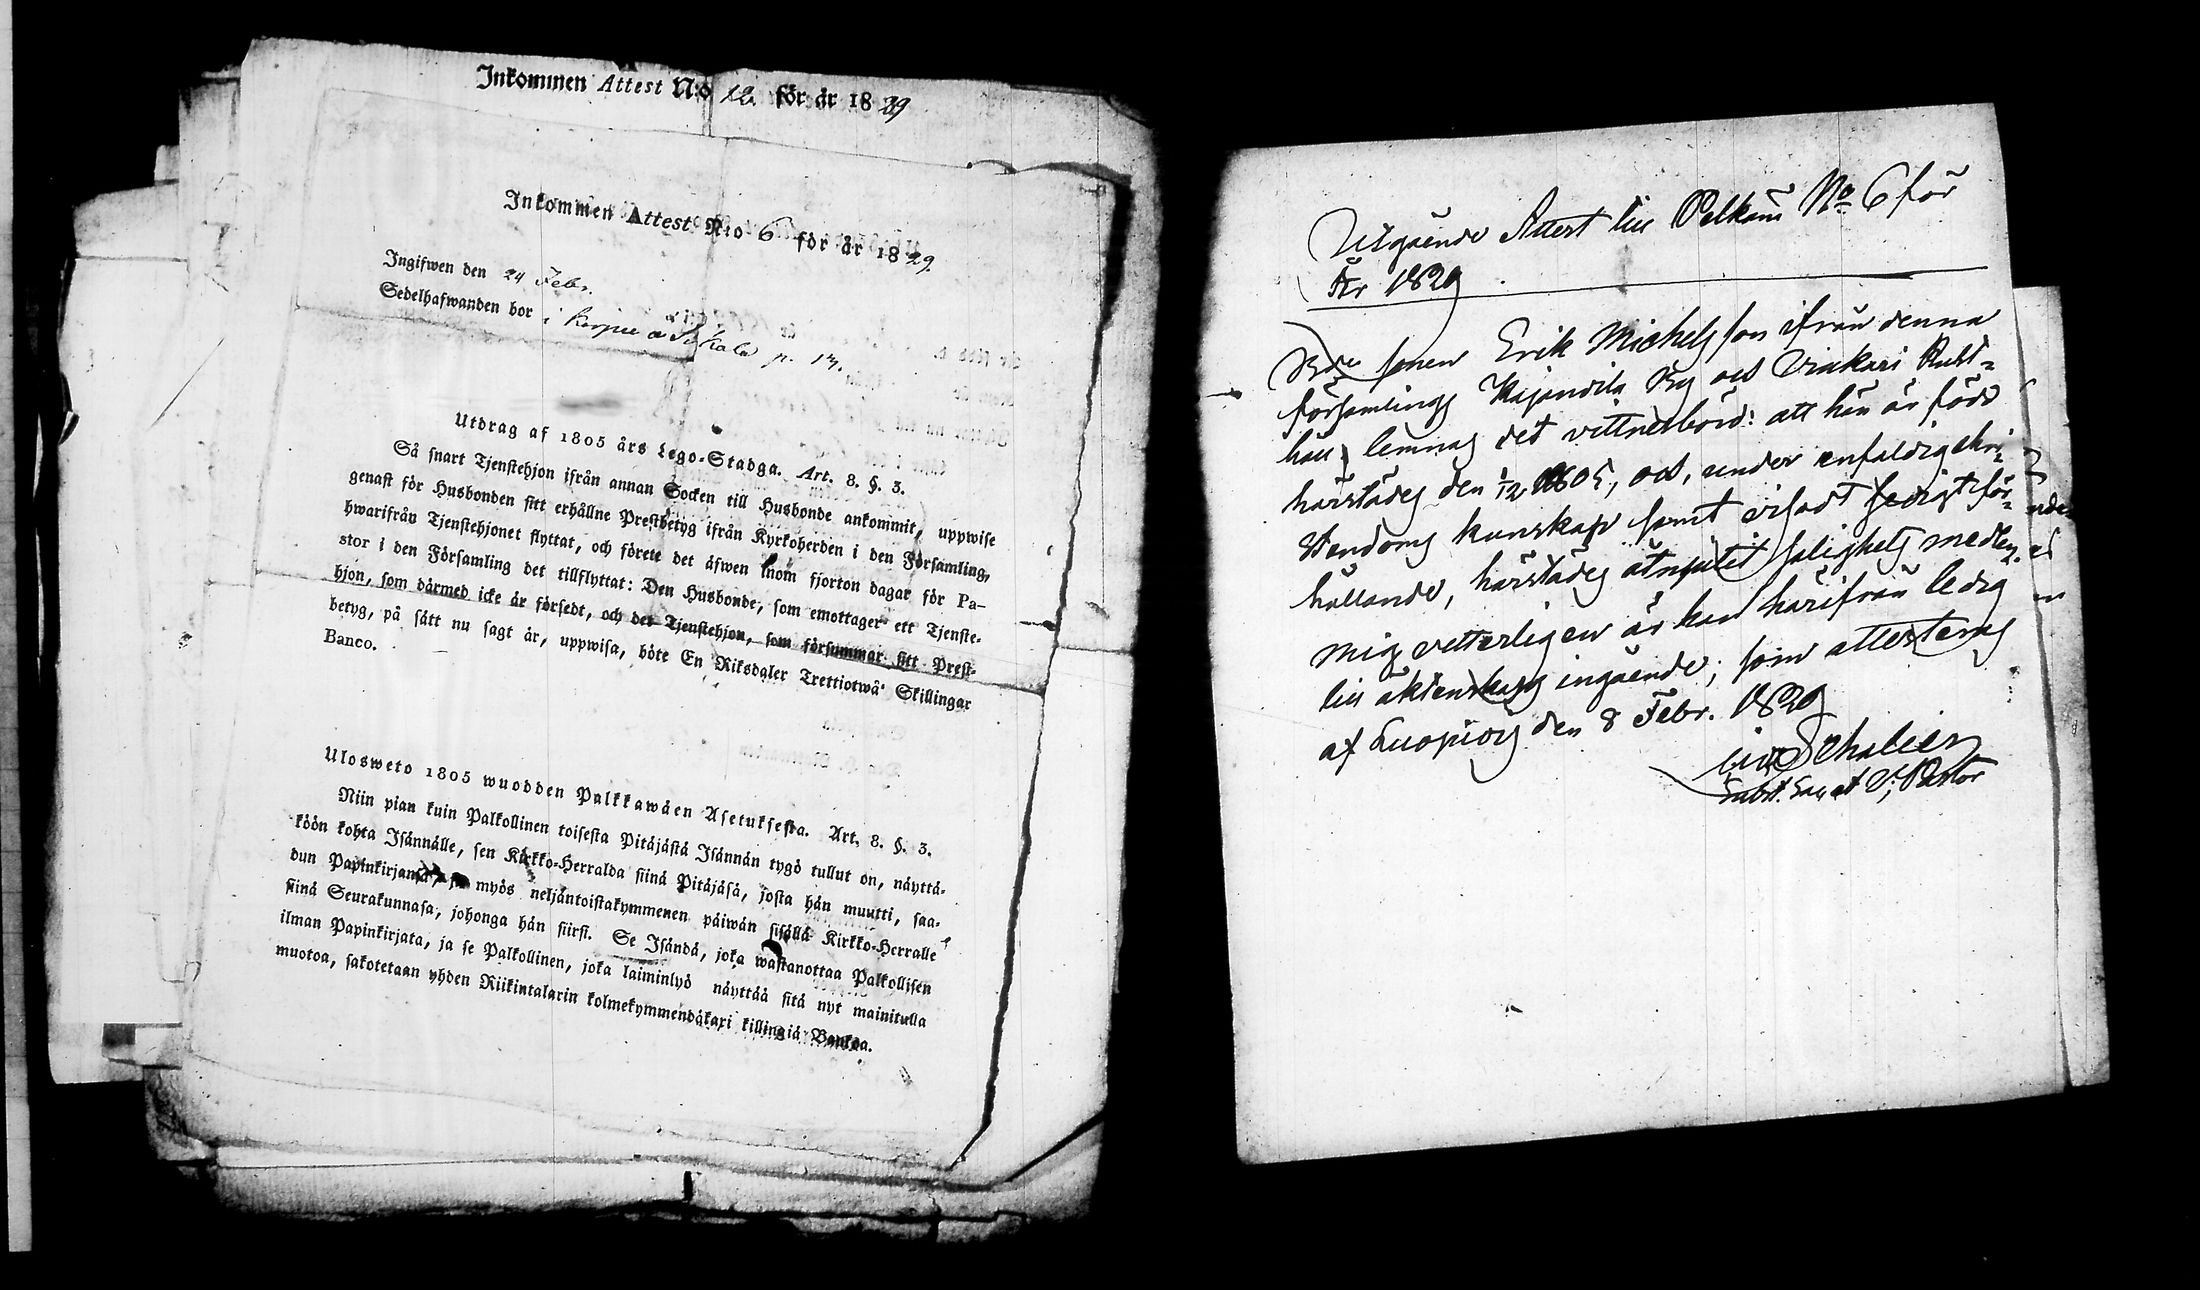 Inkommen Attest N:o 12. för år 1829
Inkommen Attest N:o 6 för år 1829.
Ingifwen den 24 Febr.
Sedelhafwanden bor i p. 131.
Utdrag af 1805 års Lego-Stadga. Art. 8. §. 3.
Så snart Tjenstehjon ifrån annan Socken till Husbonde ankommit, uppwise
genast för Husbonden sitt erhållne Prestbetyg ifrån Kyrkoherden i den Församling,
hwarifrån Tjenstehjonet flyttat, och förete det äfwen inom fjorton dagar för Pa-
stor i den Församling det tillflyttat: Den Husbonde, som emottager ett Tjenste-
hjon, som därmed icke är försedt, och det Tjenstehjon, som försummar sitt Prest-
betyg, på sätt nu sagt är, uppwisa, böte En Riksdaler Trettiotwå Skillingar
Banco.
Ulosweto 1805 wuodden Palkkawäen Asetuksesta. Art. 8. §. 3.
Niin pian kuin Palkollinen toisesta Pitäjästä Isännän tygö tullut on, näyttä-
köön kohta Isännälle, sen Kirkko-Herralda siinä Pitäjäsä, josta hän muutti, saa-
dun Papinkirjansa, ja myös neljäntoistakymmenen päiwän sisällä Kirkko-Herralle
siinä Seurakunnasa, johonga hän siirsi. Se Isändä, joka wastanottaa Palkollisen
ilman Papinkirjata, ja se Palkollinen, joka laiminlyö näyttää sitä nyt mainitulla
muotoa, sakotetaan yhden Riikintalarin kolmekymmendäkaxi killingiä Bankoa.
Utgående Attest till Pelkäne No 6 för
År 1829
sonen Erik Michelsson ifrån denna
församlings Kajandila By och Rust-
håll lemnas det vittnesbörd: att han är född
härstädes den 1/12 1805, och, under enfaldig chri-
stendoms kunskap samt visadt sedigt för-
hållande, härstädes åtnjutit salighets medlen.
Mig vetterligen är han härifrån ledig
till äktenskaps ingående; som attesteras
af Luopiois den 8 Febr. 1829
Schalien
Subst. Sac. et V. Pastor